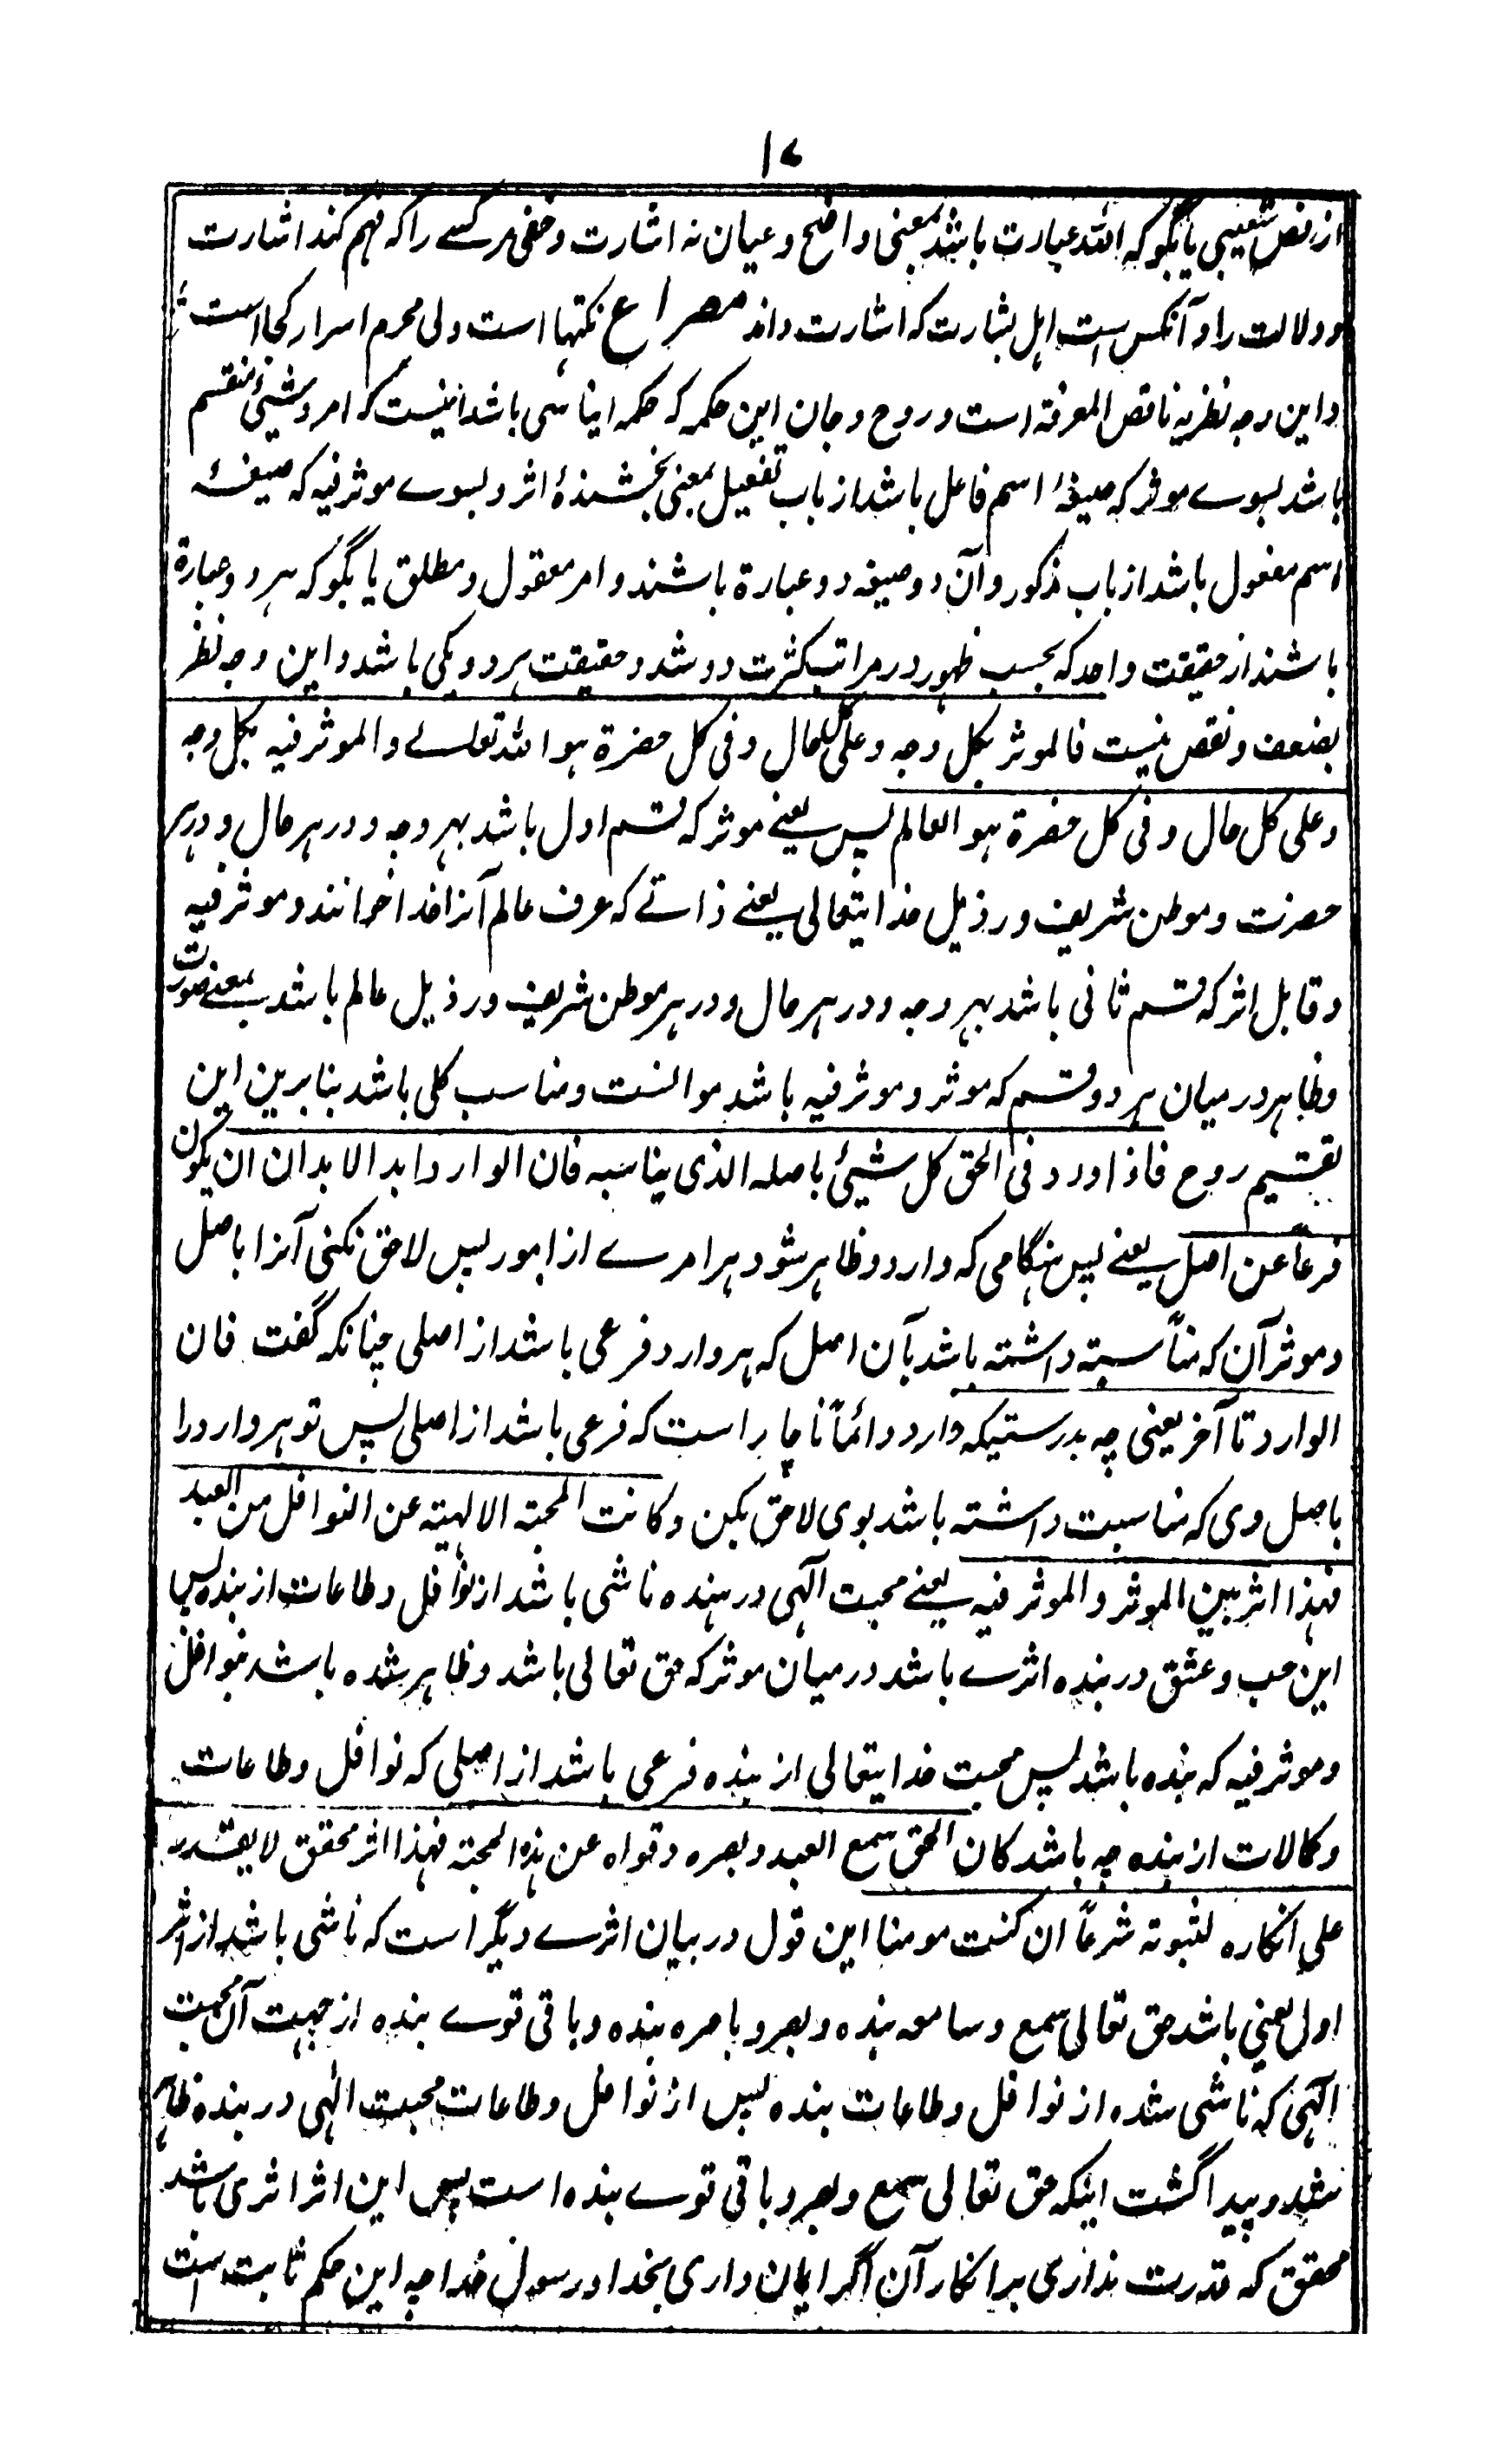 ۱۷
از نص شعیبی یا بگو که الله عبارت باشد بمعنی واضح و عیان نه اشارت و خفی هر کسے را که فهم کند اشارت
و دلالت را و آنکس است اهل بشارت که اشارت داند مصراع نکتها است ولی محرم اسرار کجا است
و این وجه نظریه ناقص المعرفة است و روح و جان این حکمه که حکمه ایناسی باشد اینست که امر و شیئ منقسم
باشد بسوے موثر که صیغهٔ اسم فاعل باشد از باب تفعیل بمعنی بخشندهٔ اثر و بسوے موثر فیه که صیغهٔ
اسم مفعول باشد از باب مذکور و آن دو صیغه دو عبارة باشند و امر معقول و مطلق یا بگو که هر دو عبارة
باشند از حقیقت واحد که بحسب ظهور در مراتب کثرت دو شد و حقیقت هر دو یکی باشد و این وجه نظر
بضعف و نقص نیست فالموثر بکل وجه و علی کل حال و فی کل حضرة هو الله تعالے و الموثر فیه بکل وجه
و علی کل حال و فی کل حضرة هو العالم پس یعنے موثر که قسم اول باشد بهر وجه و در هر حال و در هر
حضرت و موطن شریف و رذیل خدایتعالی یعنے ذاتے که عرف عالم آنرا خدا خوانند و موثر فیه
و قابل اثر که قسم ثانی باشد بهر وجه و در هر حال و در هر موطن شریف و رذیل عالم باشد بمعنے صورت
و ظاهر در میان هر دو قسم که موثر و موثر فیه باشد موانست و مناسب کلی باشد بنابرین این
تقسیم روح فاذا ورد فی الحق کل شیئ باصله الذی یناسبه فان الوارد ابد الابدان ان یکون
فرعاً عن اصل یعنے پس هنگامی که وارد و ظاهر شود هر امرے از امور پس لاحق نکنی آنرا باصل
و موثر آن که مناسبة داشته باشد بآن اصل که هر وارد فرعی باشد از اصلی چنانکه گفت فان
الوارد تا آخر یعنی چه بدرستیکه وارد دائماً ناچار است که فرعی باشد از اصلی پس تو هر وارد را
باصل وی که مناسبت داشته باشد بوی لاحق بکن و کانت المحبة الالهیة عن النوافل من العبد
فهذا اثر بین الموثر و الموثر فیه یعنے محبت الٓهی در بنده ناشی باشد از نوافل و طاعات از بنده پس
این حب و عشق در بنده اثرے باشد درمیان موثر که حق تعالی باشد و ظاهر شده باشد بنوافل
و موثر فیه که بنده باشد پس محبت خدایتعالی از بنده فرعی باشد از اصلی که نوافل و طاعات
و کمالات از بنده چه باشد کان الحق سمع العبد و بصره و قواه عن هذه المحبة فهذا اثر محقق لا یقدر
علی انکاره لثبوته شرعاً ان کنت مومنا این قول در بیان اثرے دیگر است که ناشی باشد از اثر
اول یعنی باشد حق تعالی سمع و سامعه بنده و بصر و باصره بنده و باقی قوے بنده از جهت آن محبت
الٓهی که ناشی شده از نوافل و طاعات بنده پس از نوافل و طاعات محبت الٰهی در بنده ظاهر
شد و پیدا گشت اینکه حق تعالی سمع و بصر و باقی قوے بنده است پس این اثر اثری باشد
محقق که قدرت نداری بر انکار آن اگر ایمان داری بخدا و رسول خدا چه این حکم ثابت است